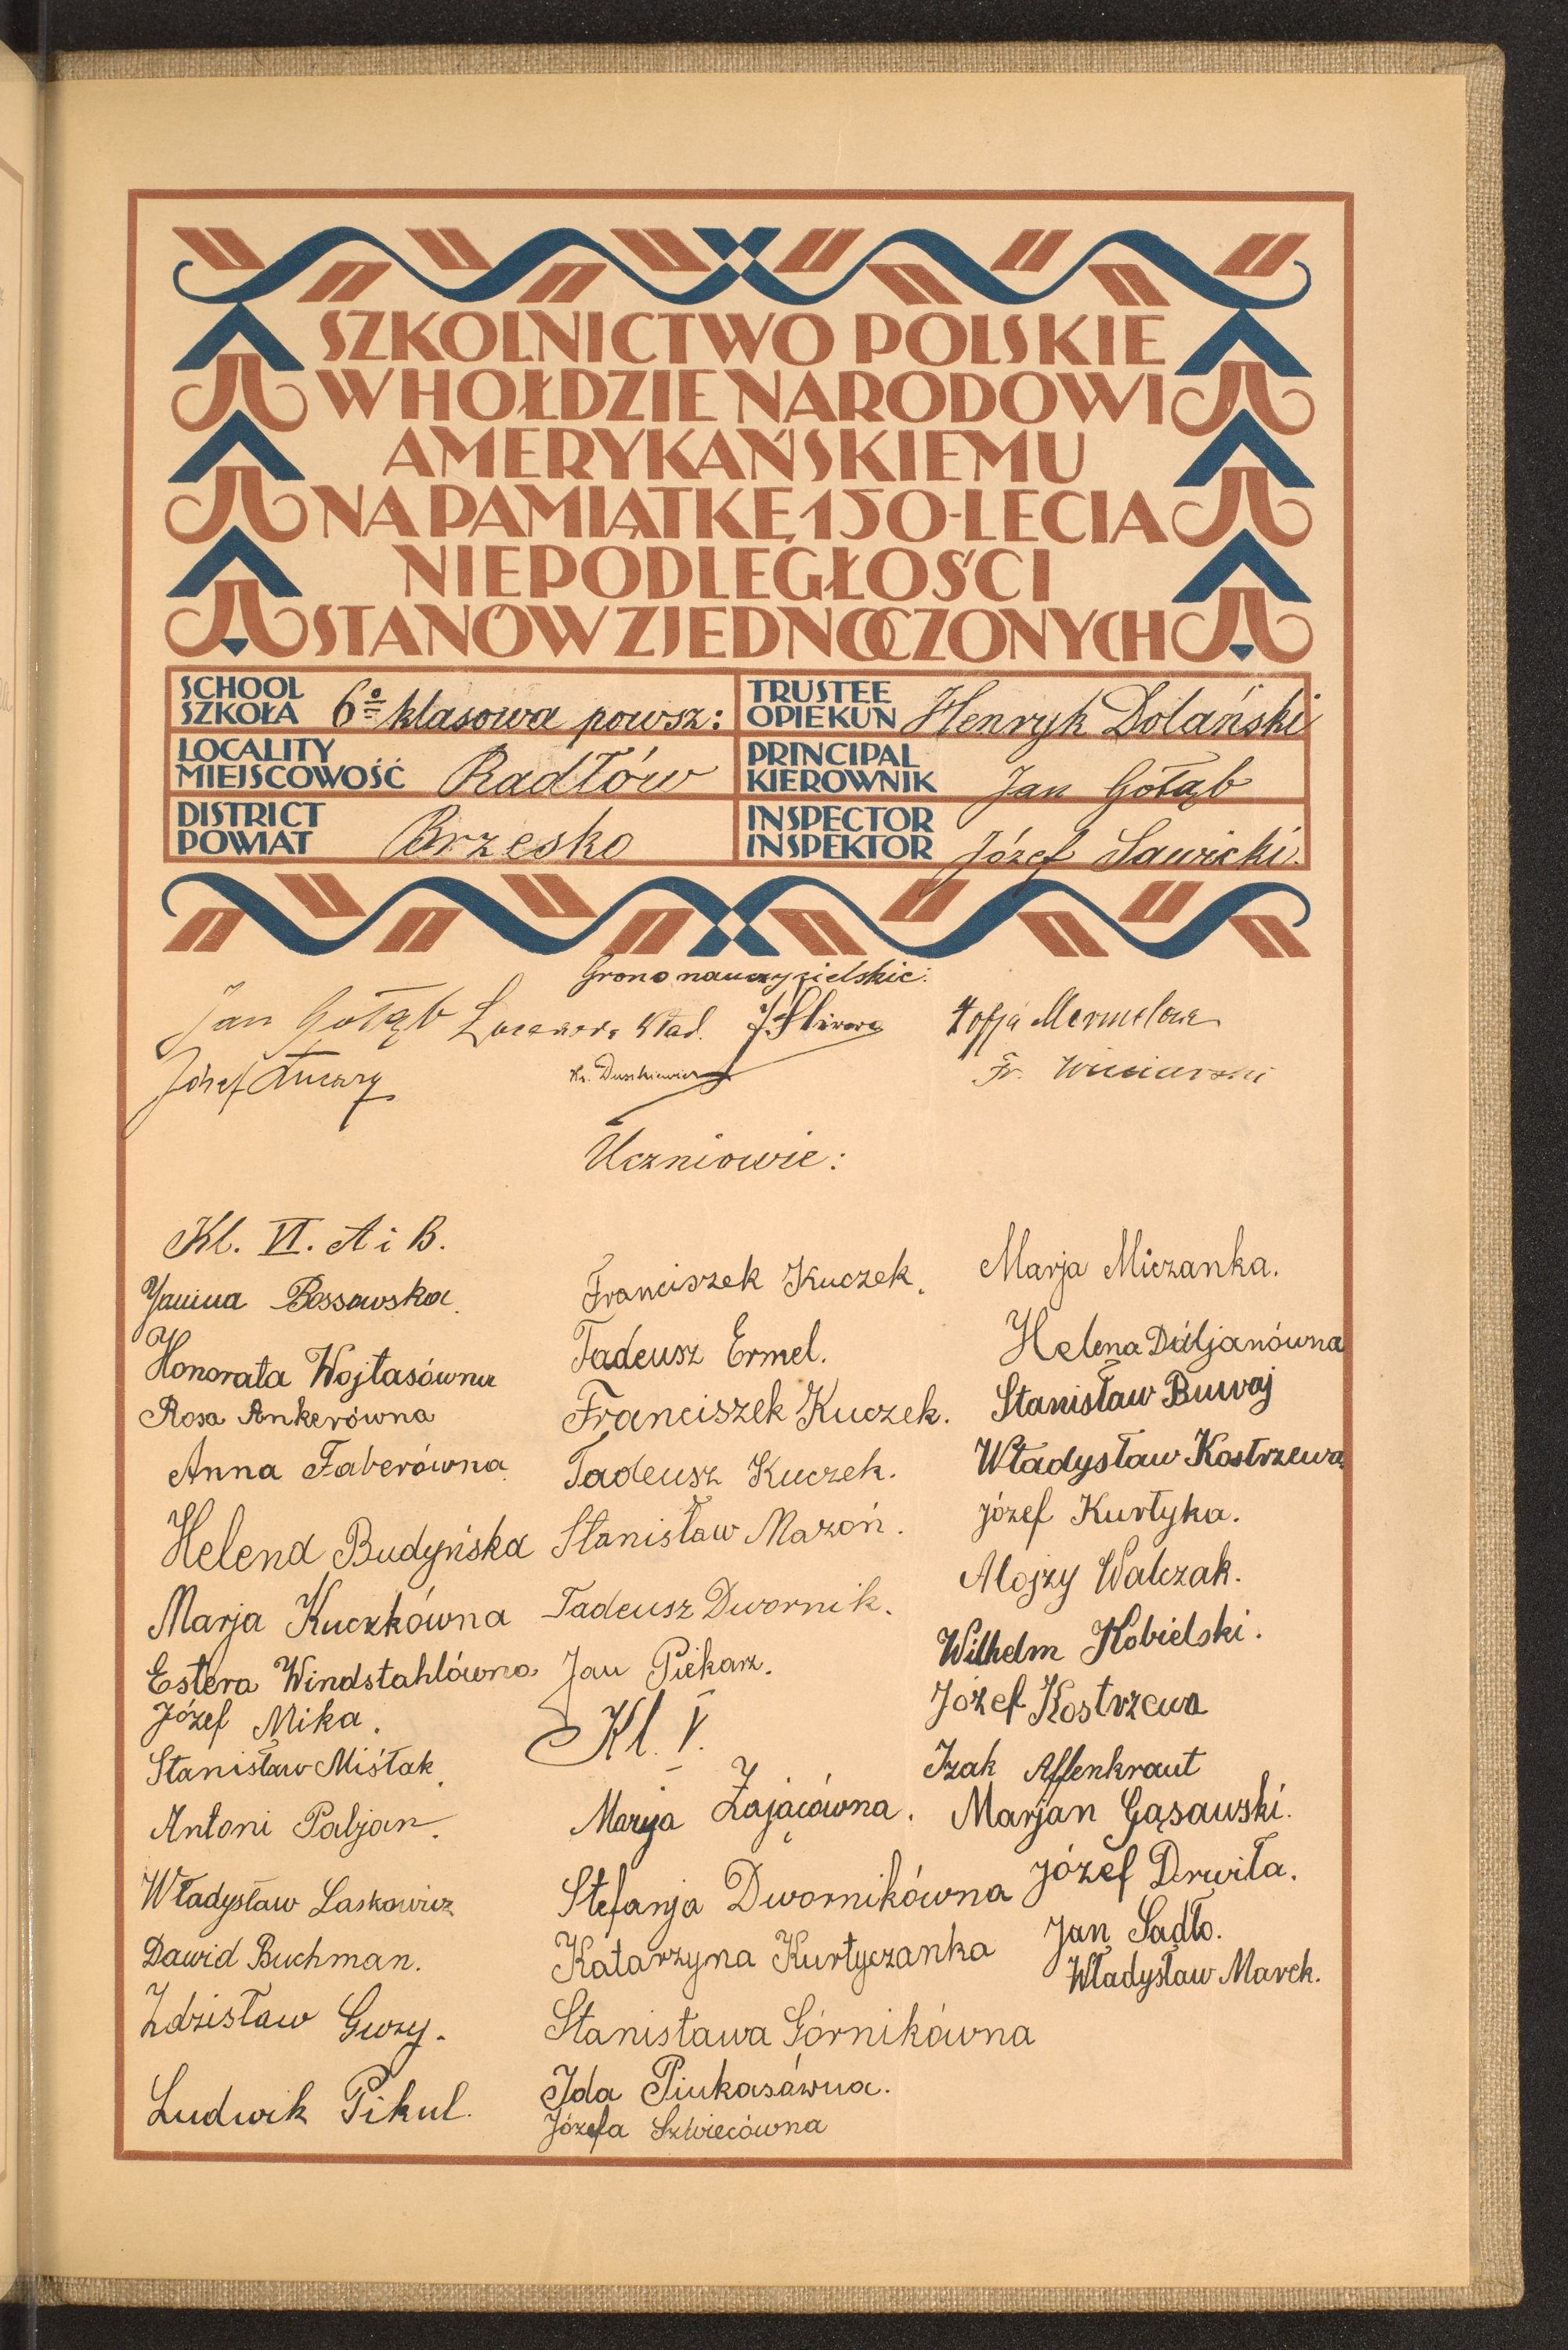 SZKOLNICTWO POLSKIE
W HOŁDZIE NARODOWI
AMERYKAŃSKIEMU
NA PAMIĄTKĘ 150-LECIA
NIEPODLEGŁOŚCI
STANÓW ZJEDNOCZONYCH
SCHOOL
SZKOŁA 6-o klasowa powsz:
TRUSTEE
OPIEKUN Henryk Dolański
LOCALITY
MIEJSCOWOŚĆ Radłów
PRINCIPAL
KIEROWNIK Jan Gołąb
DISTRICT
POWIAT Brzesko
INSPECTOR
INSPEKTOR Józef Sawicki.
Grono nauczycielskie:
Jan Gołąb
Wład.
Zofja
Józef
Kr. Duszkiewicz
Fr.
Uczniowie:
Kl. VI. A i B.
Janina Bossowska.
Honorata Wojtasówna
Rosa Ankerówna
Anna Faberówna
Helena Budyńska
Marja Kuczkówna
Estera Windstahlówna
Józef Mika.
Stanisław Miśtak.
Antoni Paljan.
Władysław Laskowicz
Dawid Buchman.
Zdzisław Gwzy.
Ludwik Pikul.
Franciszek Kuczek.
Tadeusz Ermel.
Franciszek Kuczek.
Tadeusz Kuczek.
Stanisław Mazoń.
Tadeusz Dwornik.
Jan Piekarz.
Kl. V.
Marja Zającówna.
Stefanja Dwornikówna
Katarzyna Kurtyczanka
Stanisława Górnikówna
Ida Pinkasówna.
Józefa Szwiecówna
Marja Miczanka.
Helena Daljanówna
Stanisław Buwaj
Władysław Kostrzewa
Józef Kurtyka.
Alojzy Walczak.
Wilhelm Kobielski.
Józef Kostrzewa
Izak Affenkraut
Marjan Gąsawski.
Józef Derwiła.
Jan Sadło.
Władysław Marek.